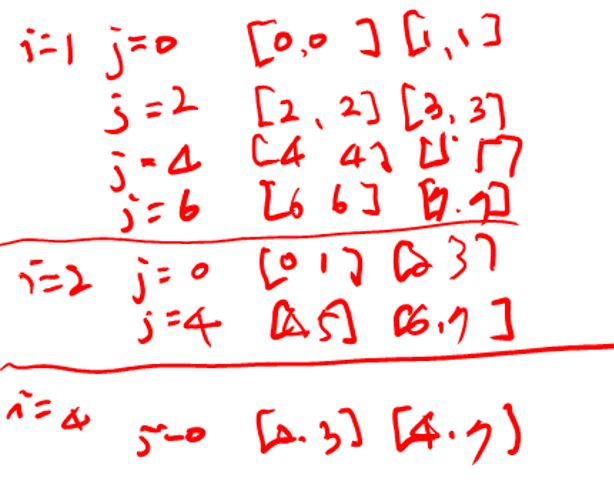 i=1 j=0 [0,0] [1,1]
j=2 [2,2] [3,3]
j=4 [4 4] [5 5]
j=6 [6 6] [7.7]
i=2 j=0 [0 1] [2 3]
j=4 [4 5] [6.7]
i=4 j=0 [0.3] [4.7]